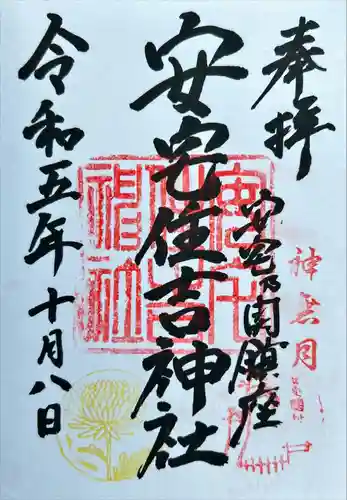 奉拝
安宅乃関鎮座
神無月
安宅住吉神社
令和五年十月八日